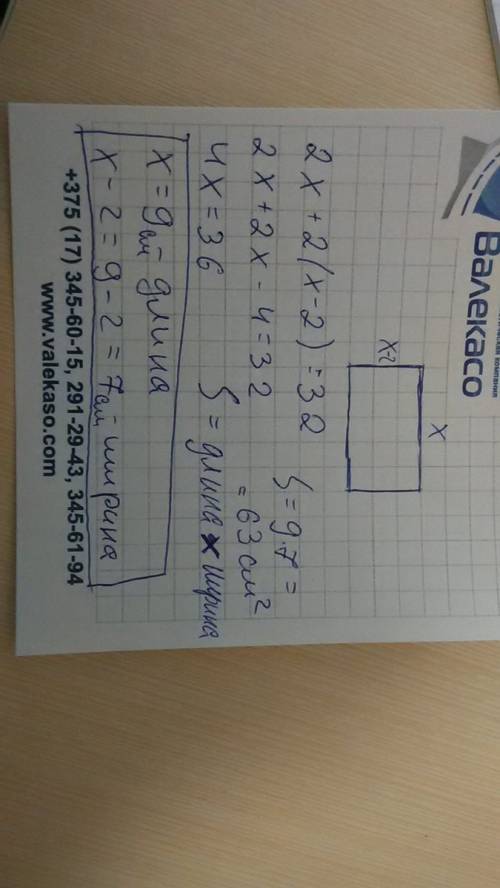 Валекасо
x
x-2
2x+2(x-2)=32
2x+2x-4=32
4x=36
S=9·7=
=63см²
S=длина x ширина
x=9см-длина
x-2=9-2=7см ширина
+375 (17) 345-60-15, 291-29-43, 345-61-94
www.valekaso.com